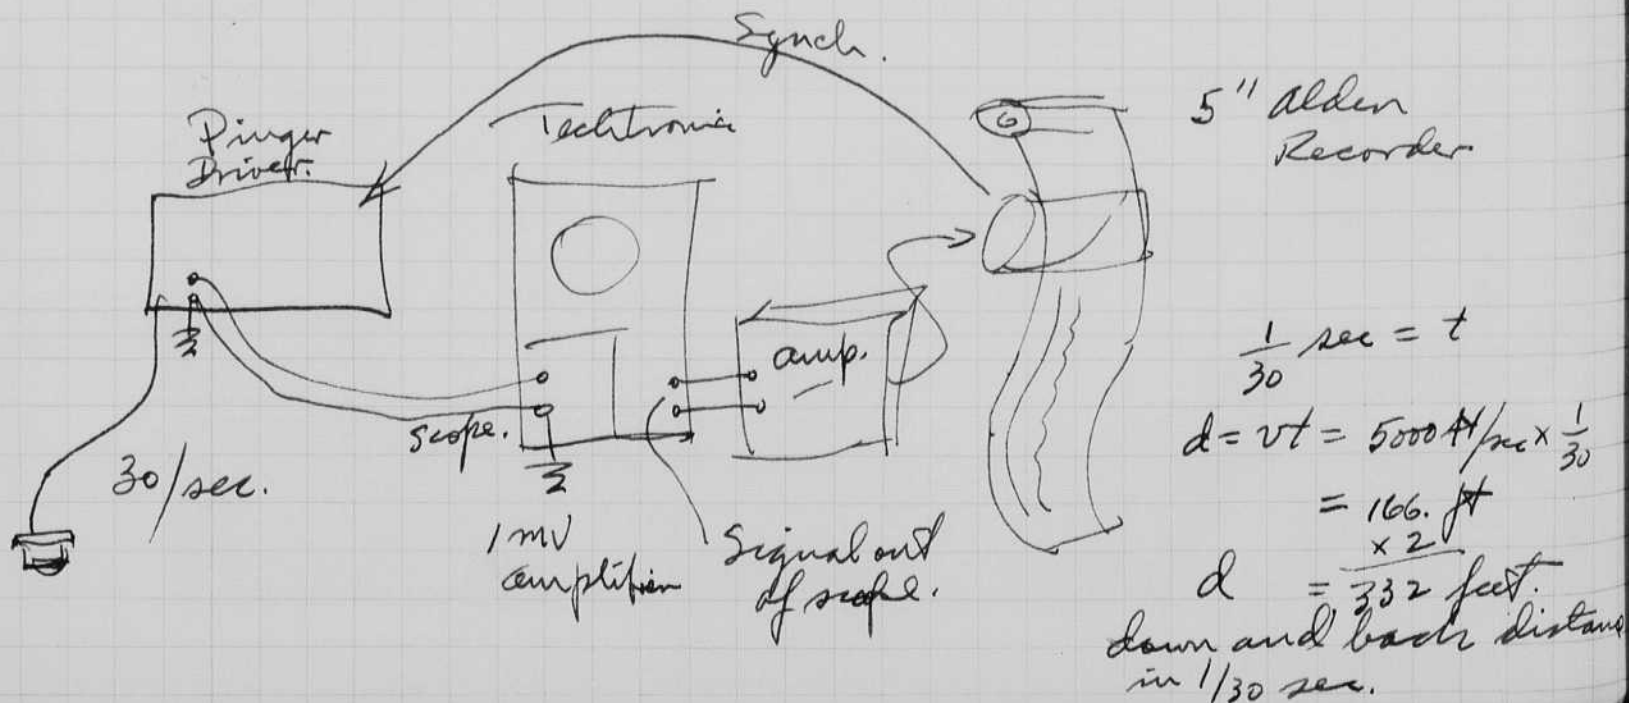 Synch.
Pinger
Driver.
Techtronic
5" Alden
Recorder
amp.
scope.
30/sec.
1 mv
amplifier
Signal out
of scope.
1/30 sec = t
d = vt = 5000 ft/sec × 1/30
= 166. ft
× 2
d = 332 feet.
down and back distance
in 1/30 sec.